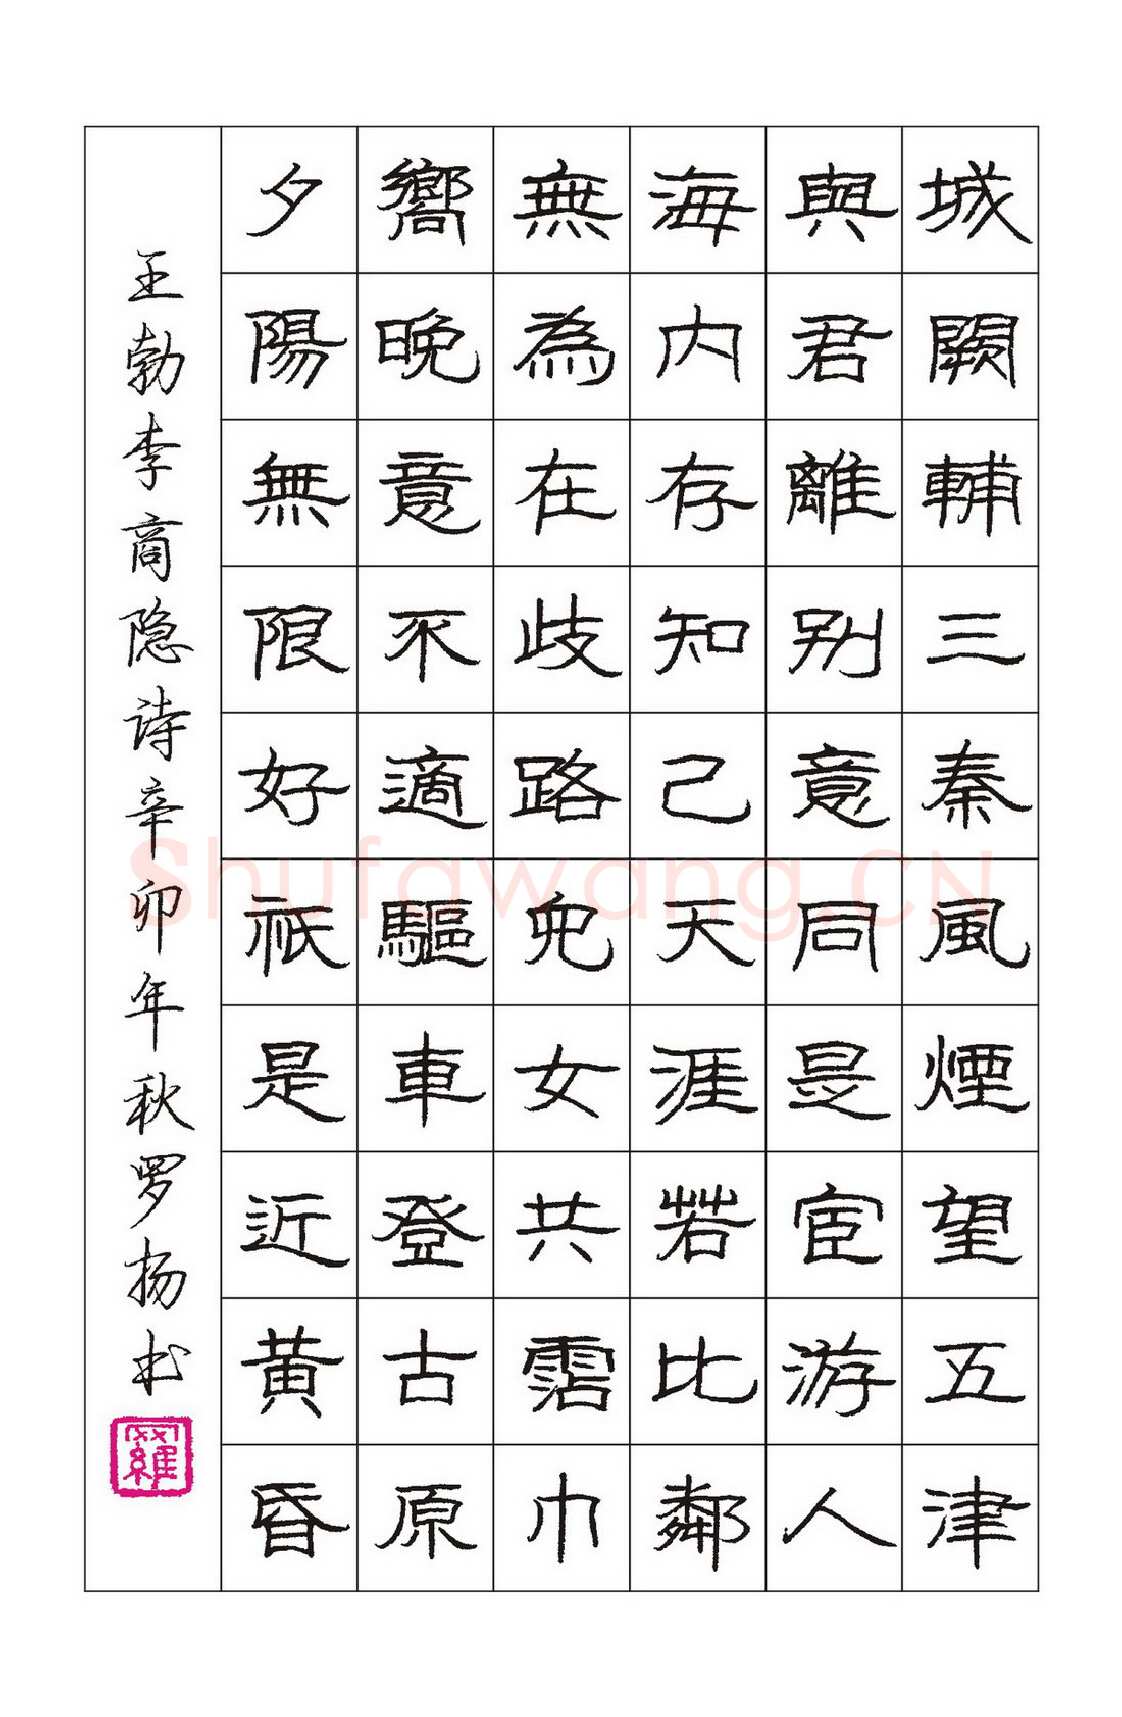 城闕輔三秦風煙望五津
與君離别意同是宦游人
海内存知己天涯若比鄰
無為在歧路兒女共霑巾
嚮晚意不適驅車登古原
夕陽無限好祇是近黄昏
王勃李商隐诗辛卯年秋罗扬书
羅
Shufawang.CN